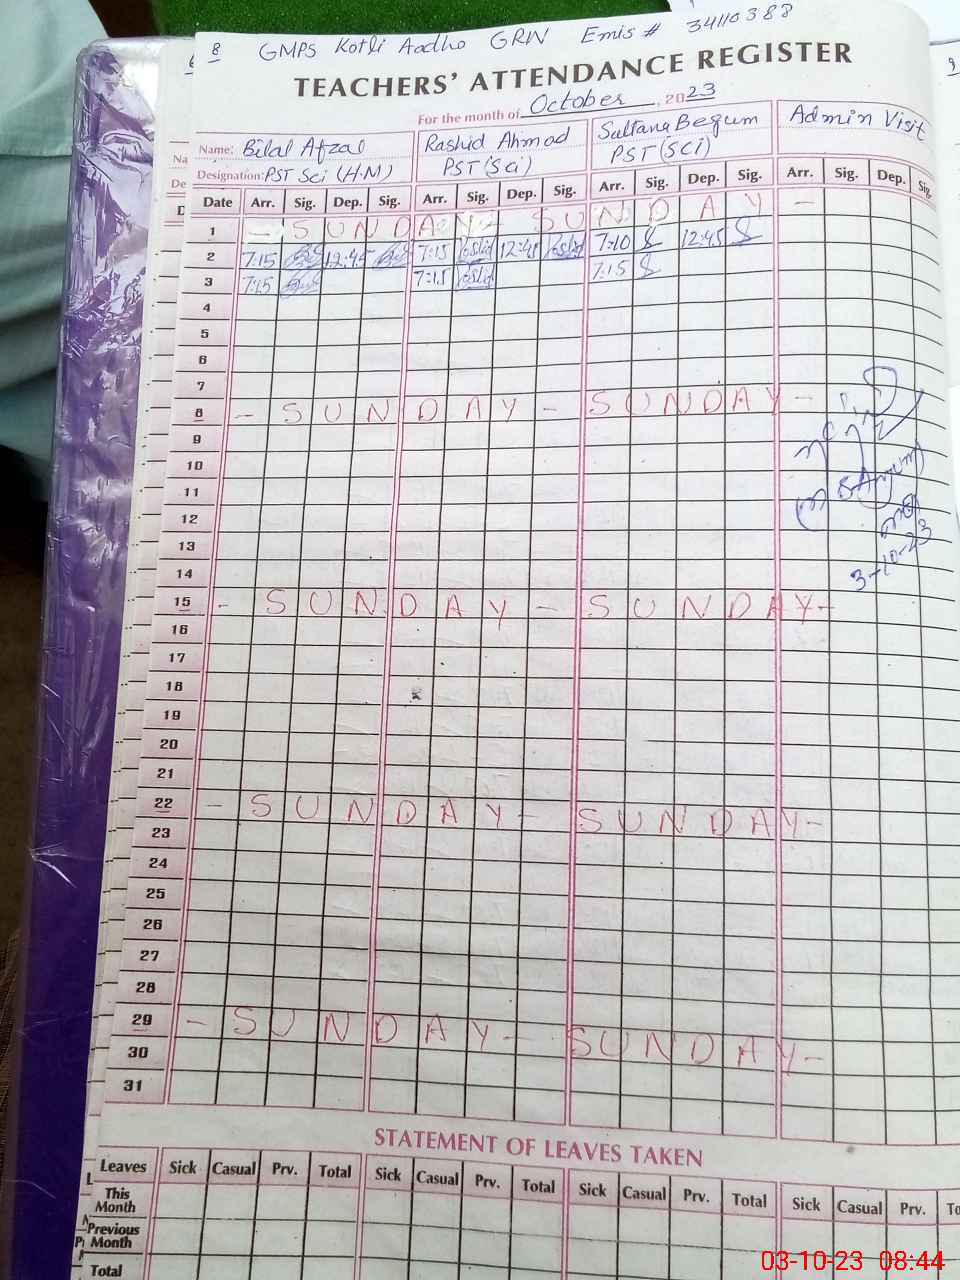 8 GMPS Kotli Aadho GRW Emis # 34110388
TEACHERS' ATTENDANCE REGISTER
For the month of October, 2023
Name: Bilal Afzal Rashid Ahmad Sultana Begum Admin Visit
Designation: PST Sci (H.M) PST (Sci) PST (SCI)
Date Arr. Sig. Dep. Sig. Arr. Sig. Dep. Sig. Arr. Sig. Dep. Sig. Arr. Sig. Dep. Sig.
1 - SUNDAY - SUNDAY -
2 7:15 12:45 7:15 12:45 7:10 12:45
3 7:15 7:15 7:15
4
5
6
7
8 - SUNDAY - SUNDAY -
9
10
11
12
13
14
15 - SUNDAY - SUNDAY -
16
17
18
19
20
21
22 - SUNDAY - SUNDAY -
23
24
25
26
27
28
29 - SUNDAY - SUNDAY -
30
31
3-10-23
STATEMENT OF LEAVES TAKEN
Leaves Sick Casual Prv. Total Sick Casual Prv. Total Sick Casual Prv. Total Sick Casual Prv.
This Month
Previous Month
Total
03-10-23 08:44